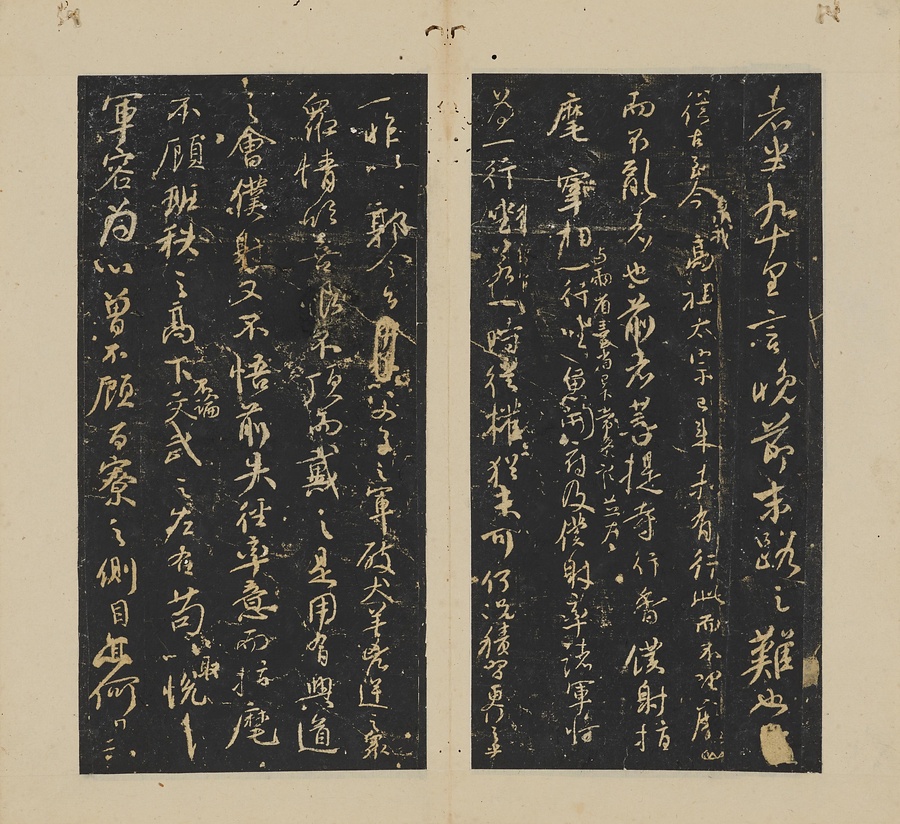 者半九十里言晚節末路之難也
從古至今暨我高祖太宗已來未有行此而不理廢此
而不亂者也前者菩提寺行香僕射指
麾宰相與兩省臺省已下常參官並為一行坐魚開府及僕射率諸軍將
為一行坐若一時從權猶未可何況積習更行之乎
一昨以郭令公以父子之軍破犬羊凶逆之眾
眾情欣喜恨不頂而戴之是用有興道
之會僕射又不悟前失徑率意而指麾
不顧班秩之高下不論文武之左右苟以取悅
軍容為心曾不顧百寮之側目亦何異